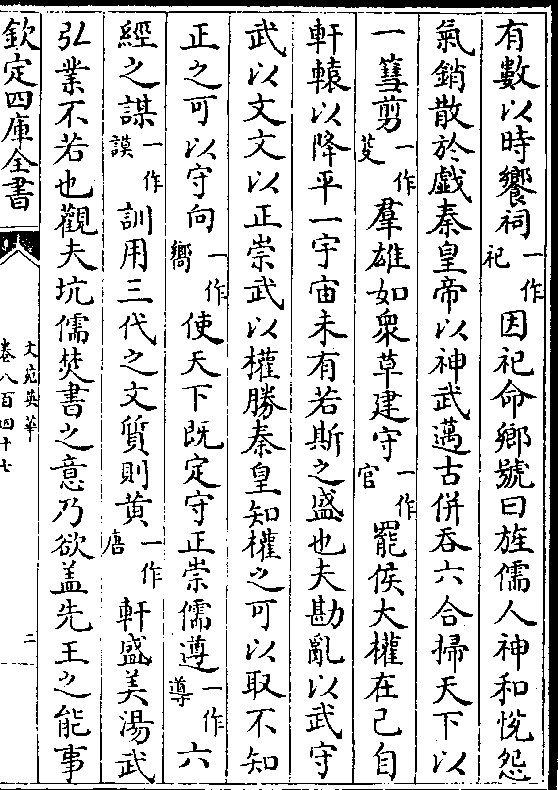 有數以時饗祠一作祀因祀命鄉號曰旌儒人神和悅怨
氣銷散於戲秦皇帝以神武邁古併吞六合掃天下以
一篲剪一作芟羣雄如衆草建守一作官罷侯大權在己自
軒轅以降平一宇宙未有若斯之盛也夫勘亂以武守
武以文文以正崇武以權勝秦皇知權之可以取不知
正之可以守向一作嚮使天下既定守正崇儒遵一作導六
經之謀一作謨訓用三代之文質則黄一作唐軒盛美湯武
弘業不若也觀夫坑儒焚書之意乃欲盖先王之能事
欽定四庫全書
文苑英華
卷八百四十七
二